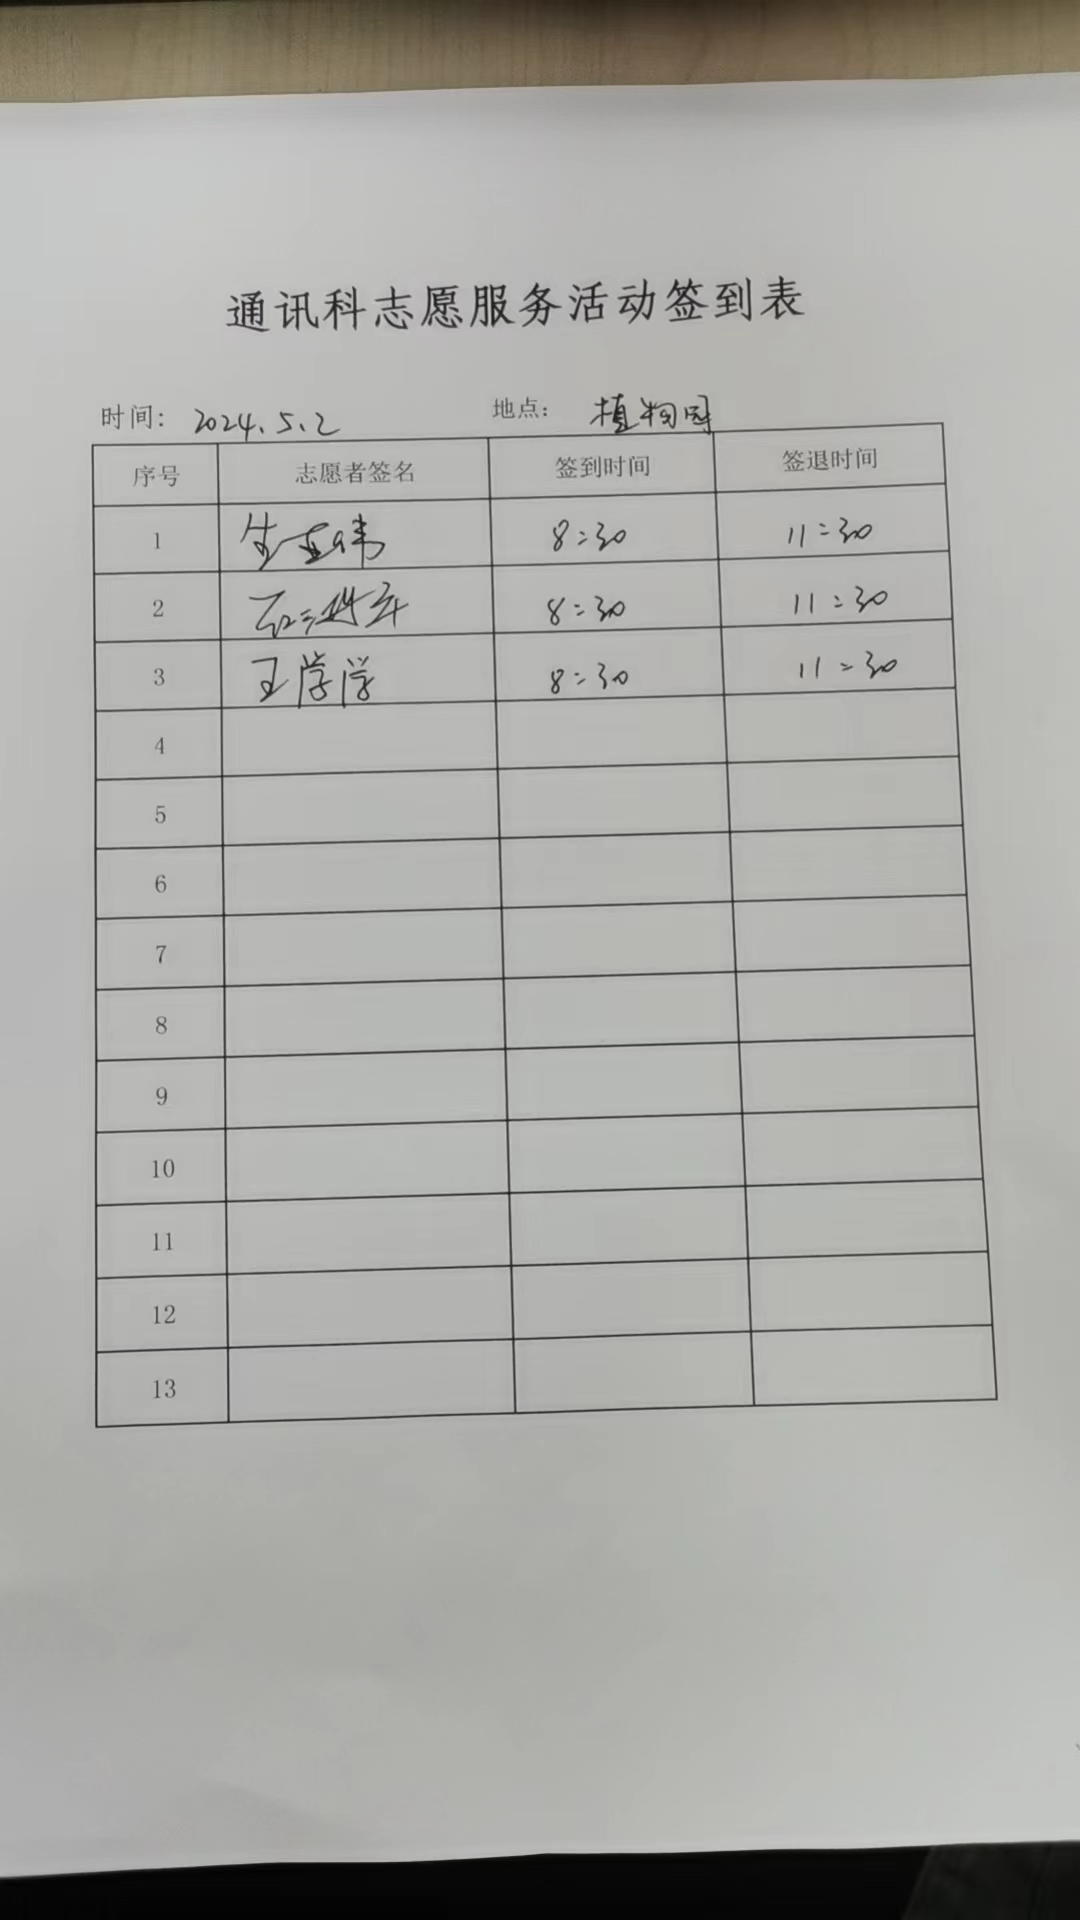 通讯科志愿服务活动签到表
时间: 2024.5.2 地点: 植物园
序号 志愿者签名 签到时间 签退时间
1 8:30 11:30
2 8:30 11:30
3 王学学 8:30 11:30
4
5
6
7
8
9
10
11
12
13